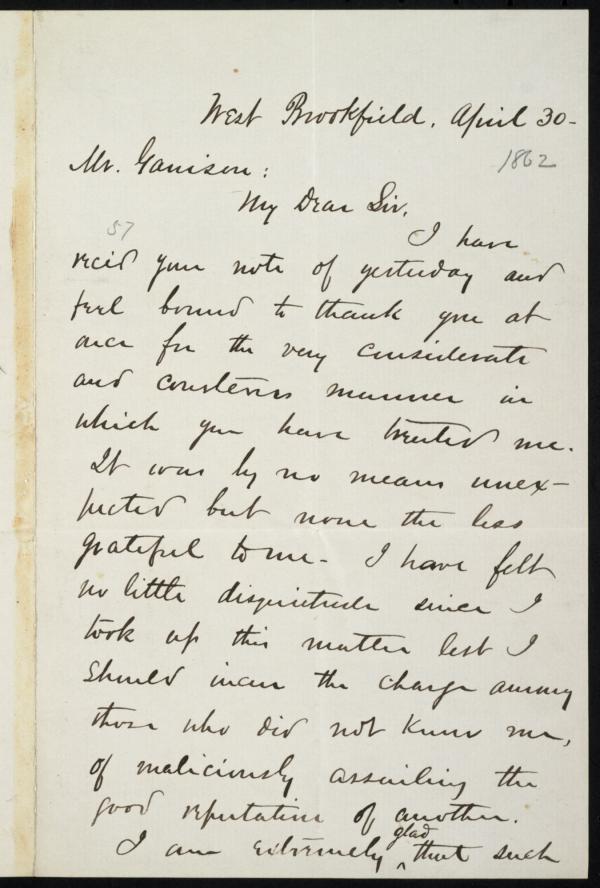 West Brookfield. April 30-
1862
Mr. Garrison:
My Dear Sir.
57
I have
recid your note of yesterday and
feel bound to thank you at
once for the very considerate
and courteous manner in
which you have treated me.
It was by no means unex-
pected but none the less
grateful to me- I have felt
no little disquietude since I
took up this matter lest I
should incur the charge among
those who did not know me,
of maliciously assailing the
good reputation of another.
I am extremely glad that such